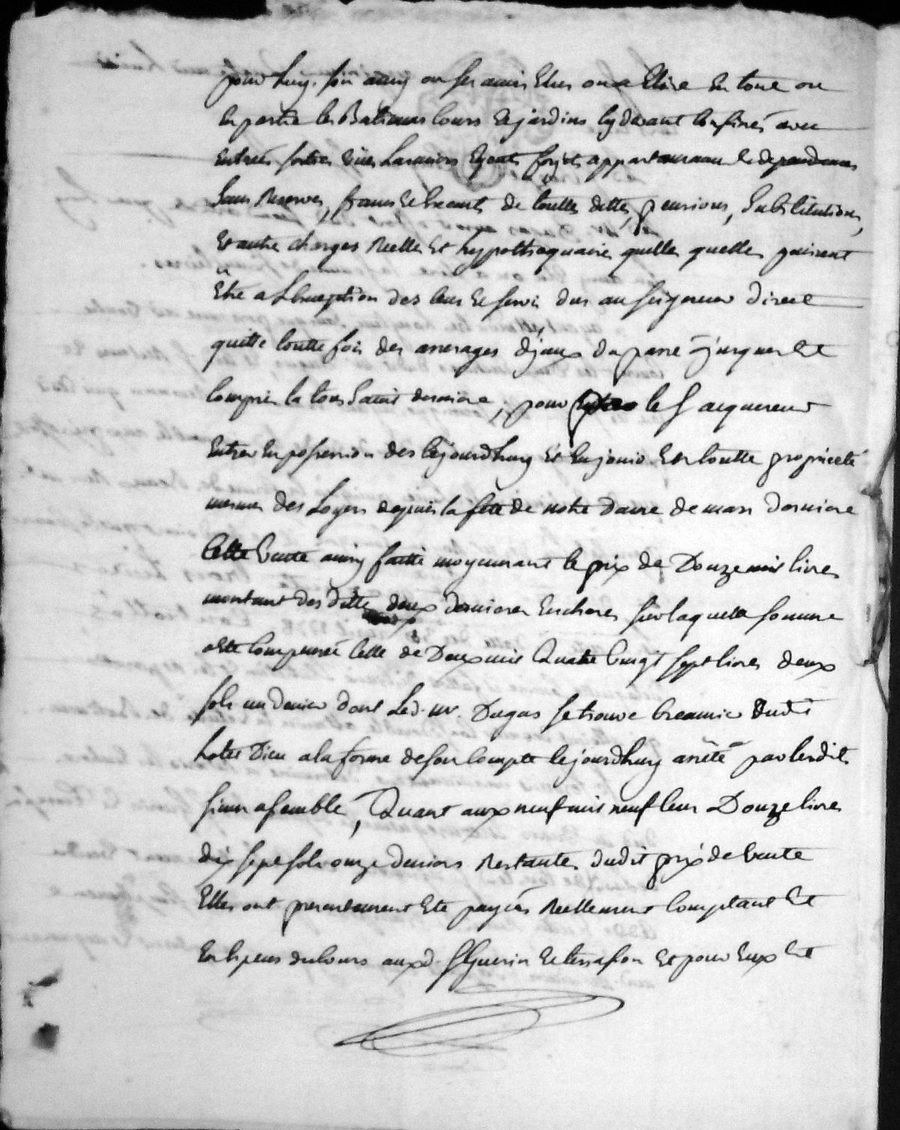 pour luy, son amy ou ses amis Elus ou a Elire En tout ou
En partie les Batimens Cours Et jardins cy devant Confinés avec
Entrées sorties vües Larmiers Egouts forjets appartenances Et dependances
sans Reserves, francs Et Exempts de touttes dettes, pensions, substitutions,
Et autre charges Reelles Et hypothequaire quelle quelles puissent
Etre a L'Exception des Cens Et servis dus au seigneur direct
quitte toutte fois des arrerages d'jceux du passé jusques Et
Compris la tous saint derniere, pour le s. acquereur
Entrer En possession des Cejourdhuy Et En jouir En toutte proprieté
mesmes des Loyers depuis la fête de notre dame de mars derniere
Cette Vente ainsy faitte moyennant le prix de Douze mil livres
montant des dittes deux dernieres Encheres sur laquelle somme
a Eté Compensée Celle de Deux mil Quatre Vingt sept livres deux
sols un denier dont Led. mr. Dugas se trouve Creancier dudit
hotel Dieu a la forme de son Compte Cejourdhuy arrété par lesdits
sieurs assemblé, Quant aux neuf mil neuf Cent Douze livres
dix sept sols onze deniers Restantes dudit prix de Vente
Elles ont presentement Eté payées Reellement Comptant Et
En Especes du Cours aux d. srs Guerin Et terrasson Et pour Eux Et